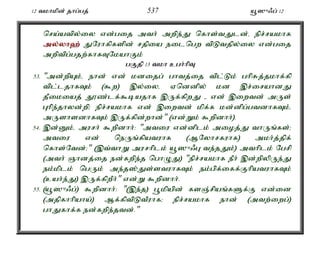 12 வமாமின் தாப்பத் 537 யூஸுஃப் 12
செய்யவில்லை என்பதை அவர் அறிந்து கொள்வதுடன், நிச்சயமாக
அல்லாஹ் துரோகிகளின் சதியை நடைபெற விடுவதில்லை என்பதை
அறிவிப்பதற்காகவுமேயாகும்
பகுதி 13 வமா உபர்ரிவு
53. "அன்றியும், நான் என் மனதைப் பாவத்தை விட்டும் பரிசுத்தமாக்கி
விட்டதாகவும் (கூற) இல்லை, ஏனெனில் மன இச்சையானது
தீமையைத் தூண்டக்கூடியதாக இருக்கிறது - என் இறைவன் அருள்
புரிந்தாலன்றி; நிச்சயமாக என் இறைவன் மிக்க மன்னிப்பவனாகவும்,
அருளாளனாகவும் இருக்கின்றான்" (என்றும் கூறினார்).
54. இன்னும், அரசர் கூறினார்: "அவரை என்னிடம் அழைத்து வாருங்கள்;
அவரை என் நெருங்கியவராக (ஆலோசகராக) அமர்த்திக்
கொள்வேன்:" (இவ்வாறு அரசரிடம் யூஸுஃபு வந்ததும்) அவரிடம் பேசி
(அவர் ஞானத்தை நன்கறிந்த பொழுது) "நிச்சயமாக நீர் இன்றிலிருந்து
நம்மிடம் பெரும் அந்தஸ்துள்ளவராகவும் நம்பிக்கைக்குரியவராகவும்
(உயர்ந்து) இருக்கிறீர்" என்று கூறினார்.
55. (யூஸுஃப்) கூறினார்: "(இந்த) பூமியின் களஞ்சியங்களுக்கு என்னை
(அதிகாரியாய்) ஆக்கிவிடுவீராக; நிச்சயமாக நான் (அவற்றைப்)
பாதுகாக்க நன்கறிந்தவன்."